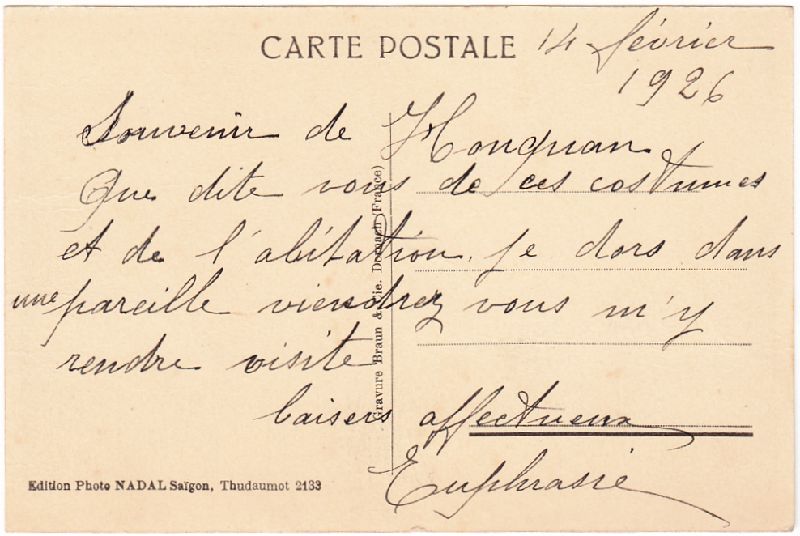 CARTE POSTALE 14 février
1926
Souvenir de Honquan
Que dite vous de ces costumes
et de l'abitation. je dors dans
une pareille viendrez vous m'y
rendre visite
baisers affectueux
Euphrasie
Gravure Braun & Cie. Dornach (France)
Edition Photo NADAL Saïgon, Thudaumot 2133